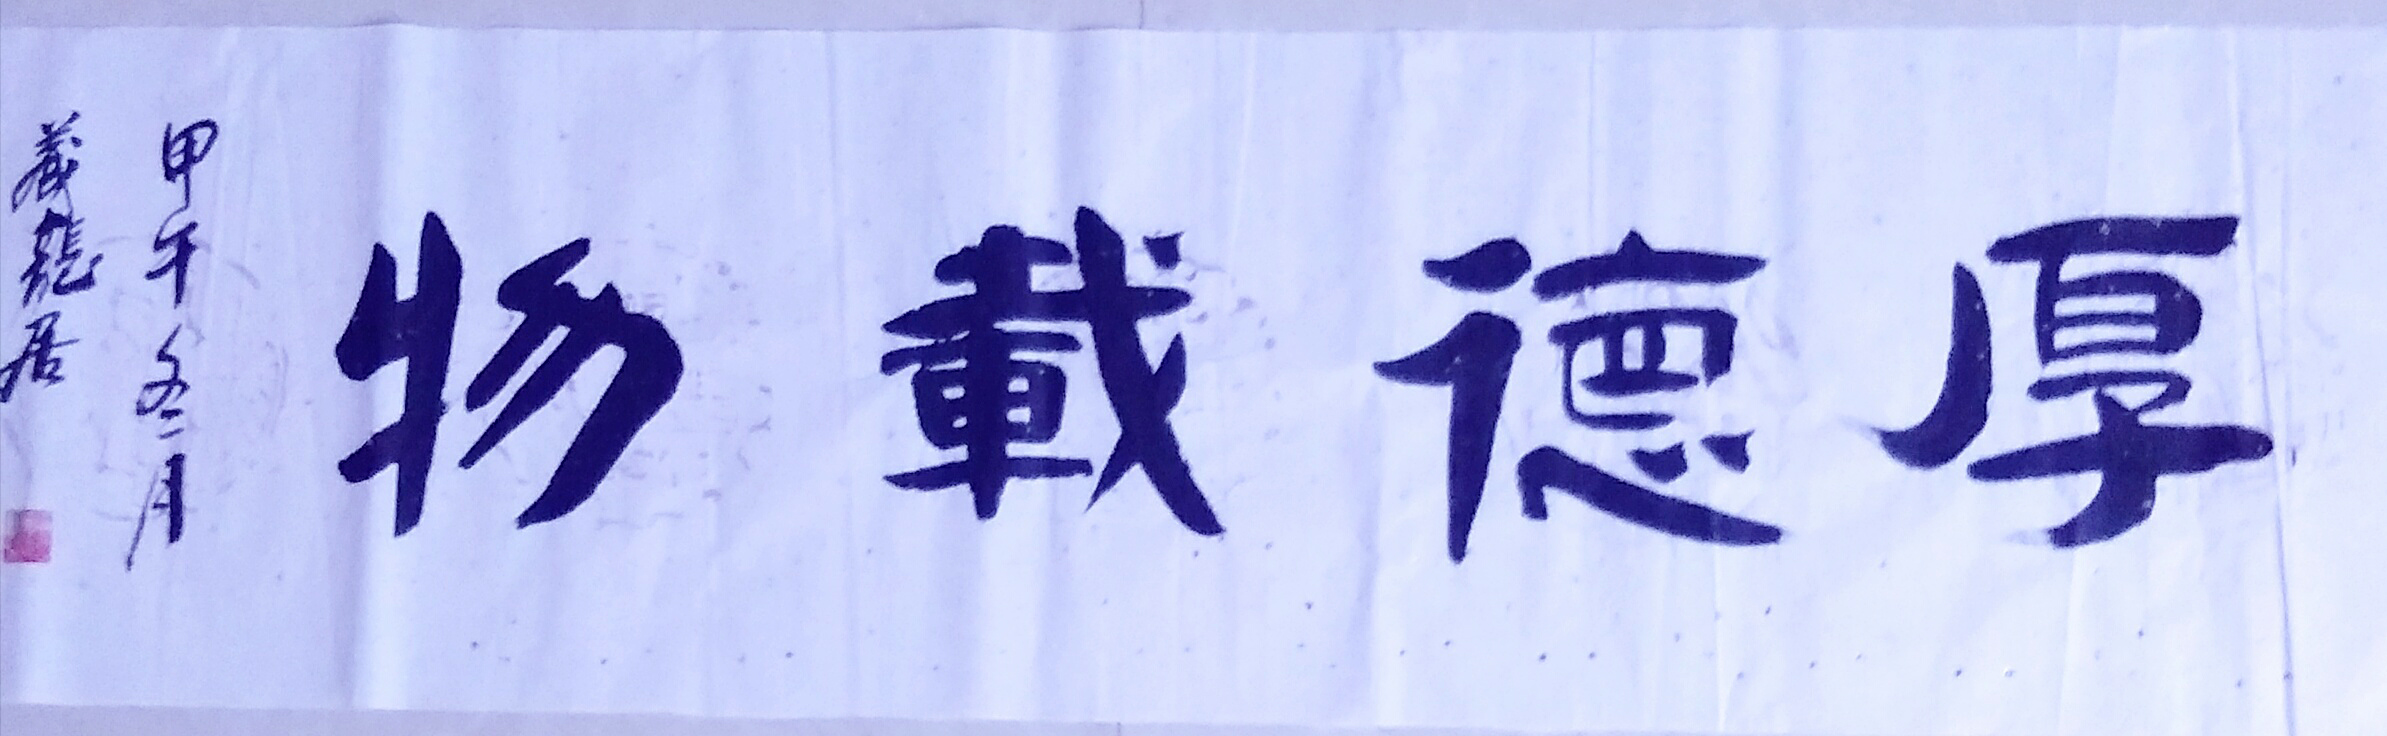 厚德載物
甲午冬月
藏龍居